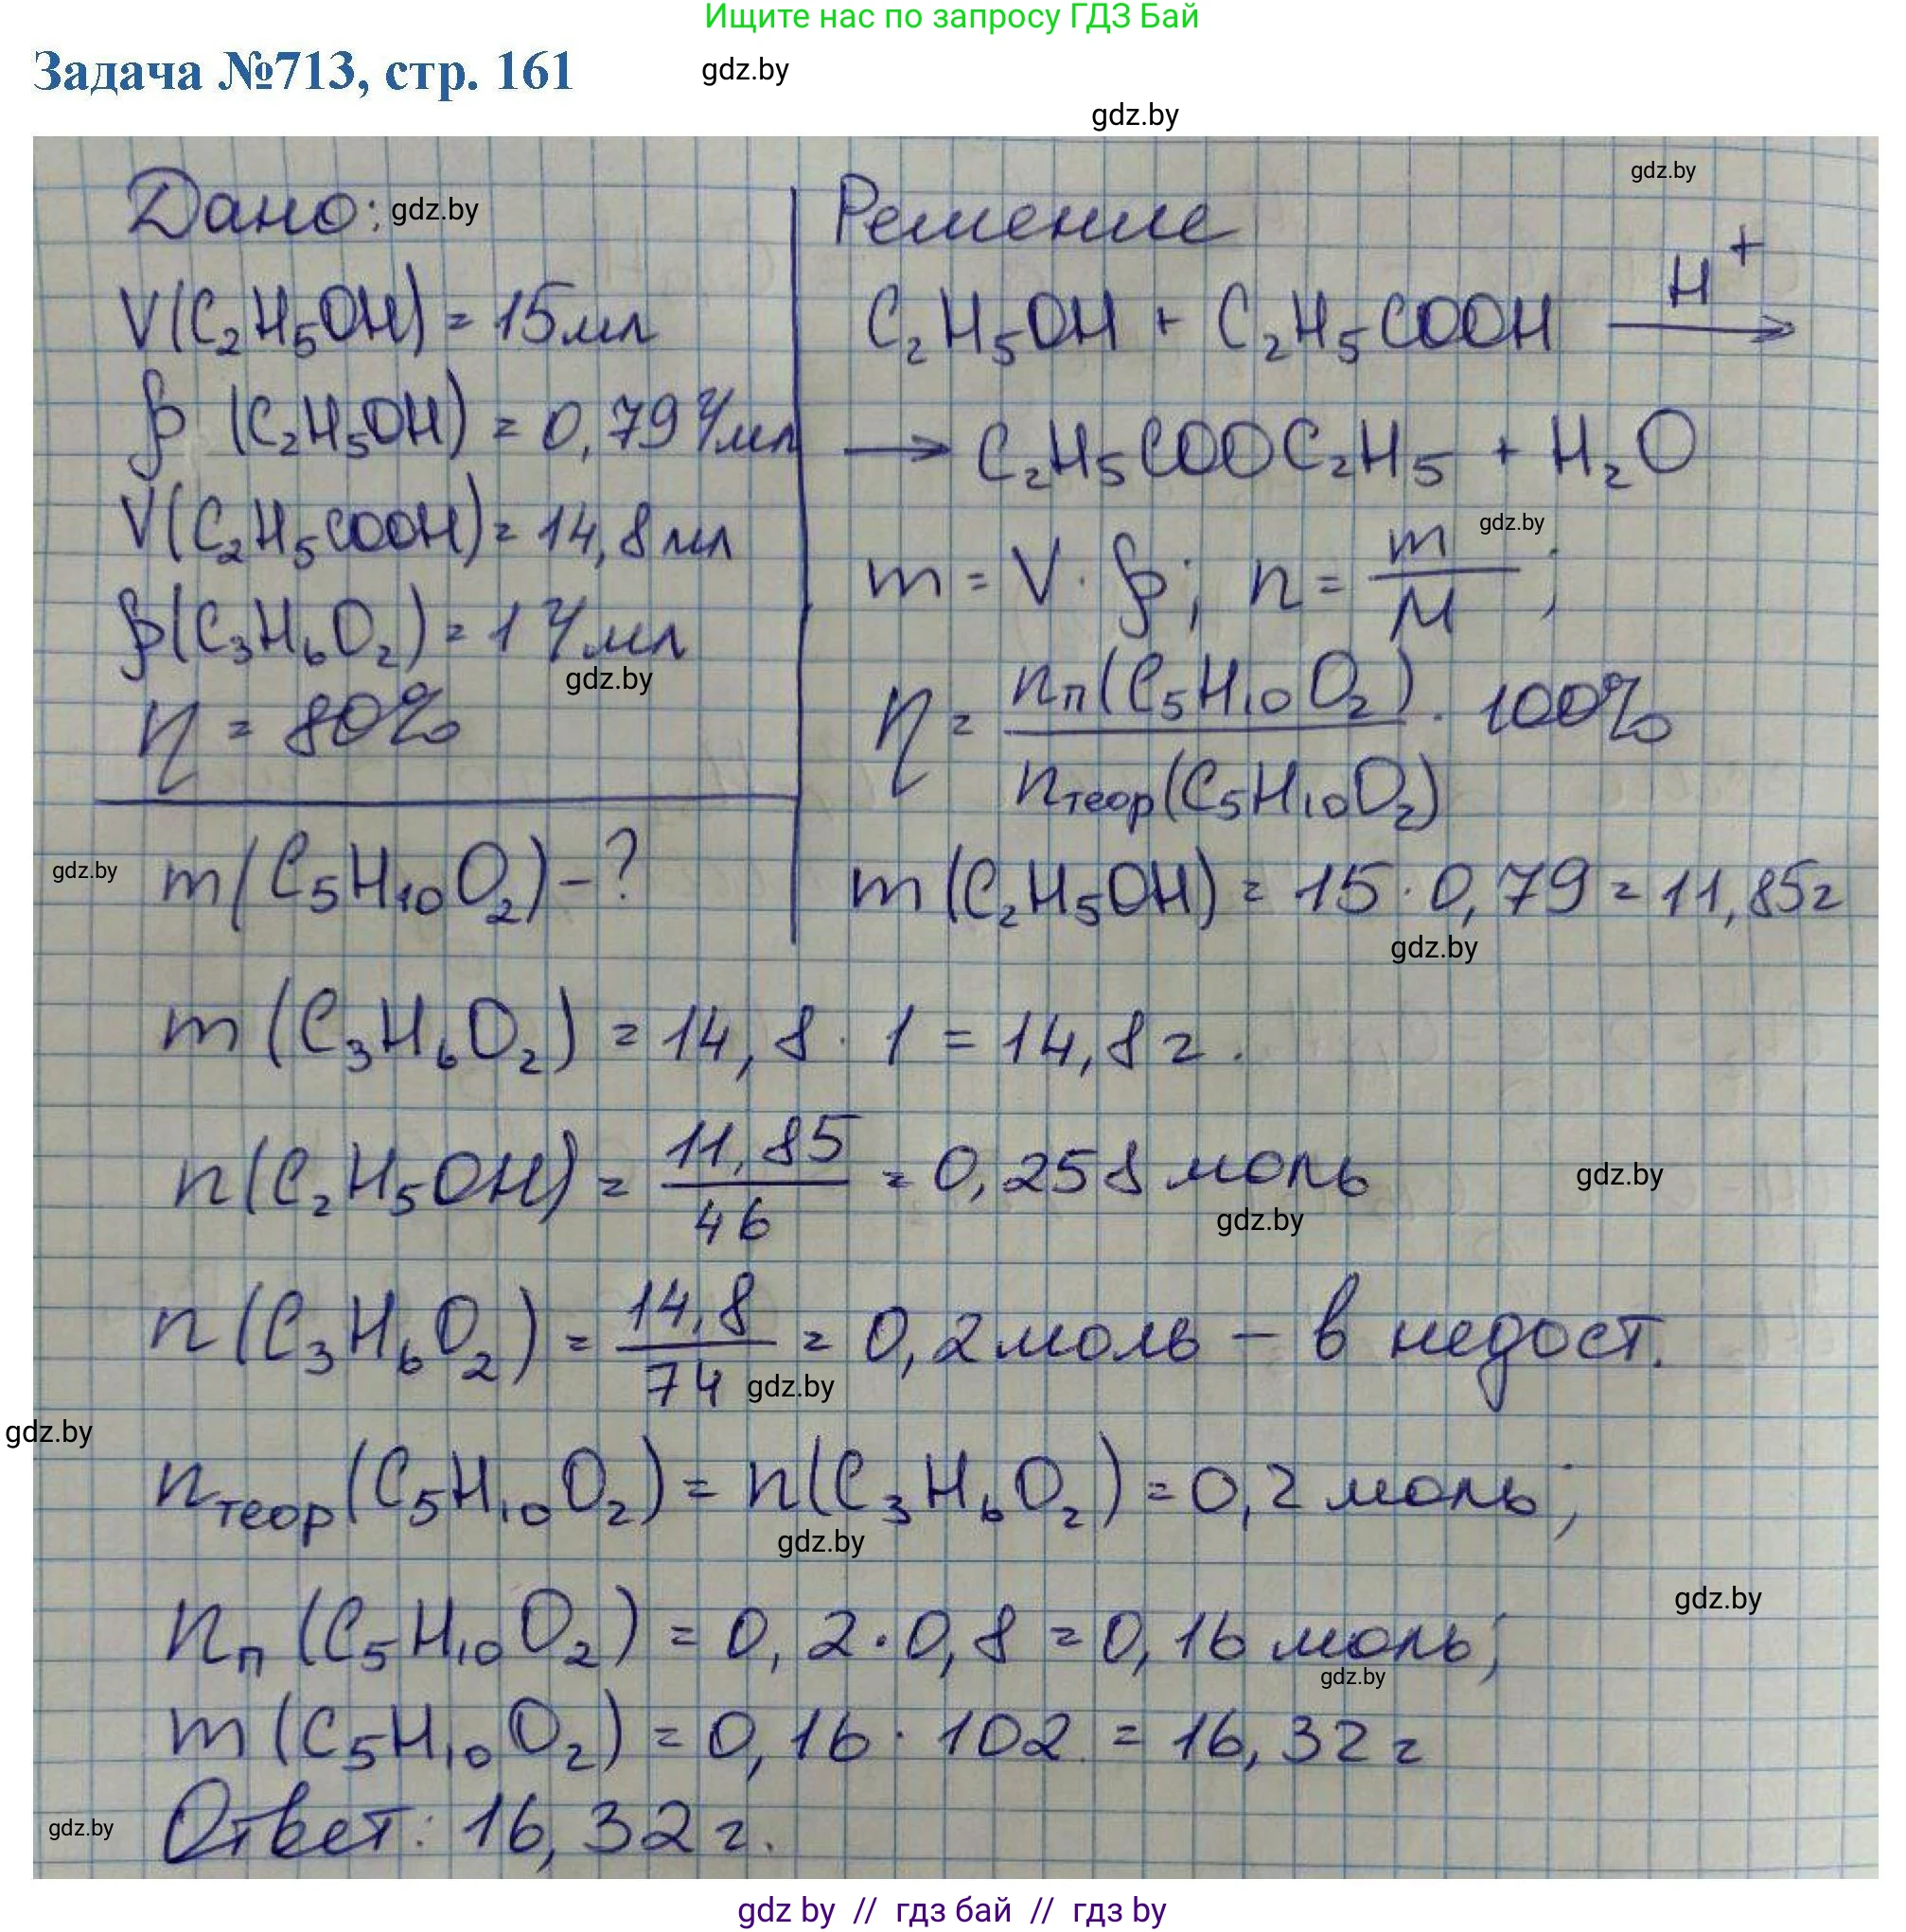 Ищите нас по запросу ГДЗ Бай
Задача №713, стр. 161
gdz.by
gdz.by
gdz.by
Дано: gdz.by
V(C₂H₅OH) = 15 мл
ρ (C₂H₅OH) = 0,79 г/мл
V(C₂H₅COOH) = 14,8 мл
ρ(C₃H₆O₂) = 1 г/мл
gdz.by
η = 80%
gdz.by
m(C₅H₁₀O₂) - ?
Решение
C₂H₅OH + C₂H₅COOH H⁺ →
→ C₂H₅COOC₂H₅ + H₂O
gdz.by
m = V · ρ; n = m/M;
η = nп(C₅H₁₀O₂) / nтеор(C₅H₁₀O₂) · 100%
m (C₂H₅OH) = 15 · 0,79 = 11,85г
gdz.by
m (C₃H₆O₂) = 14,8 · 1 = 14,8 г.
n(C₂H₅OH) = 11,85/46 = 0,258 моль
gdz.by
gdz.by
n (C₃H₆O₂) = 14,8/74 = 0,2 моль – в недост.
gdz.by
gdz.by
nтеор(C₅H₁₀O₂) = n(C₃H₆O₂) = 0,2 моль;
gdz.by
gdz.by
nп (C₅H₁₀O₂) = 0,2 · 0,8 = 0,16 моль;
gdz.by
m (C₅H₁₀O₂) = 0,16 · 102 = 16,32 г
gdz.by
Ответ: 16,32 г.
gdz by // гдз бай // гдз by